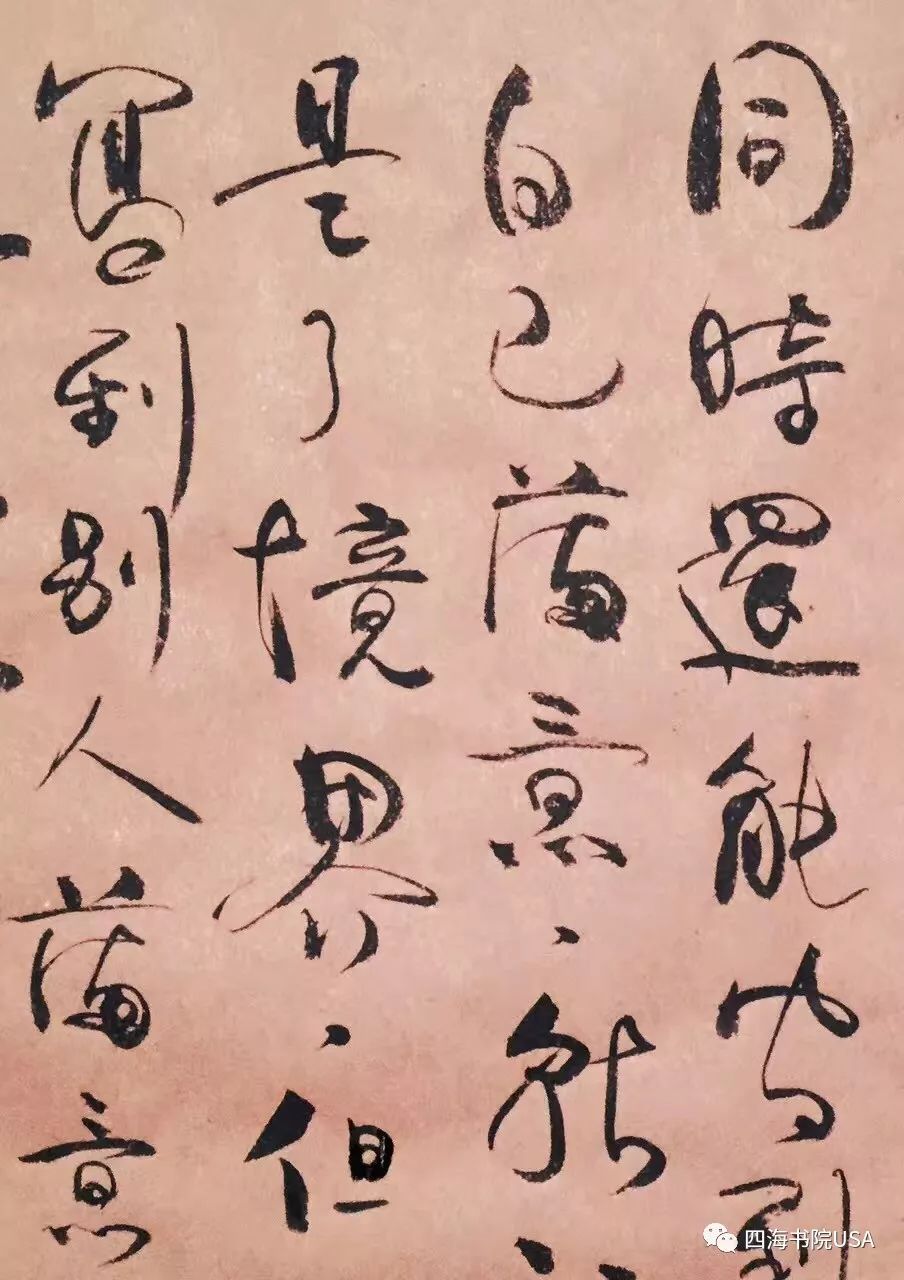 同時還能寫到
自己滿意、就、
是了境界、但
寫到別人滿意
四海书院USA